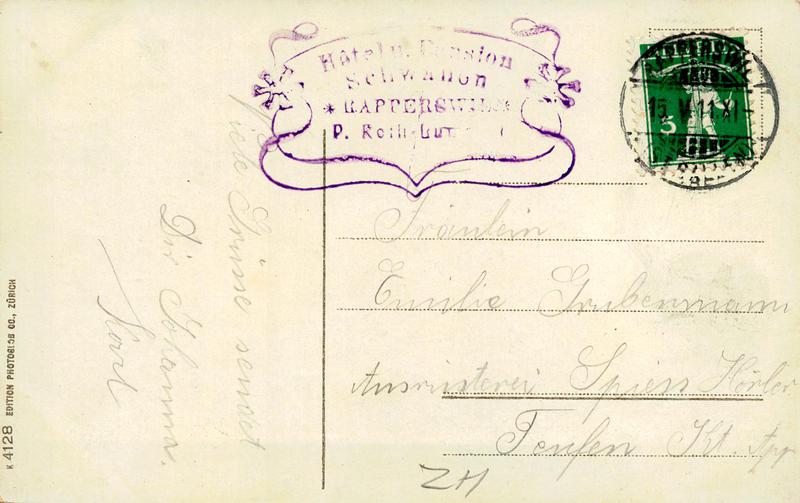 Hôtel u. Pension
Schwanen
* RAPPERSWIL *
P. Roth-
RAPPERSWIL
15. V. 11. XI
5
Viele Grüsse sendet
Dir Johanna.
Karl
Fräulein
Emilie Grubenmann
Ausrüsterei Spiess Hörler
Teufen Kt. App
ZH
K 4128 EDITION PHOTOGLOB CO., ZÜRICH